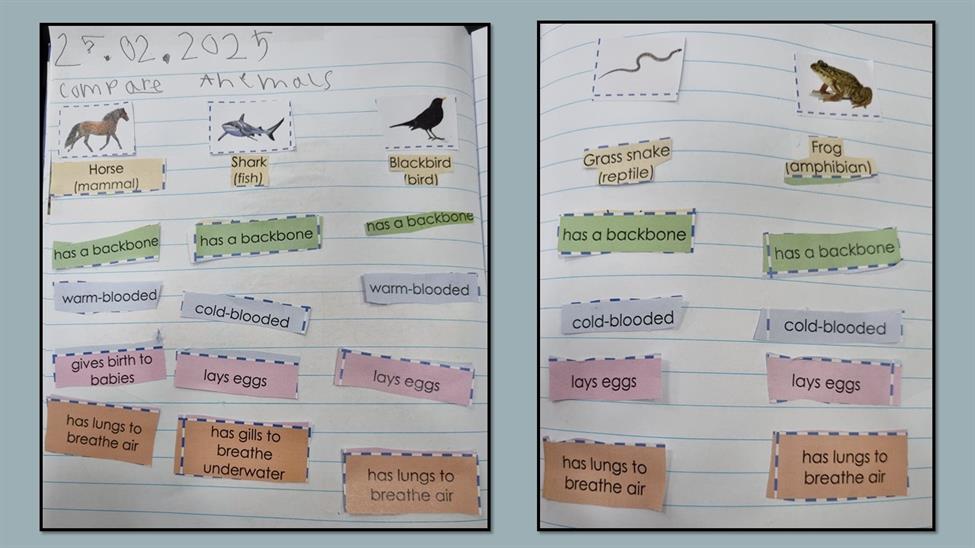 25.02.2025
compare Anemals
Horse
(mammal)
Shark
(fish)
Blackbird
(bird)
has a backbone
has a backbone
has a backbone
warm-blooded
cold-blooded
warm-blooded
gives birth to
babies
lays eggs
lays eggs
has lungs to
breathe air
has gills to
breathe
underwater
has lungs to
breathe air
Grass snake
(reptile)
Frog
(amphibian)
has a backbone
has a backbone
cold-blooded
cold-blooded
lays eggs
lays eggs
has lungs to
breathe air
has lungs to
breathe air